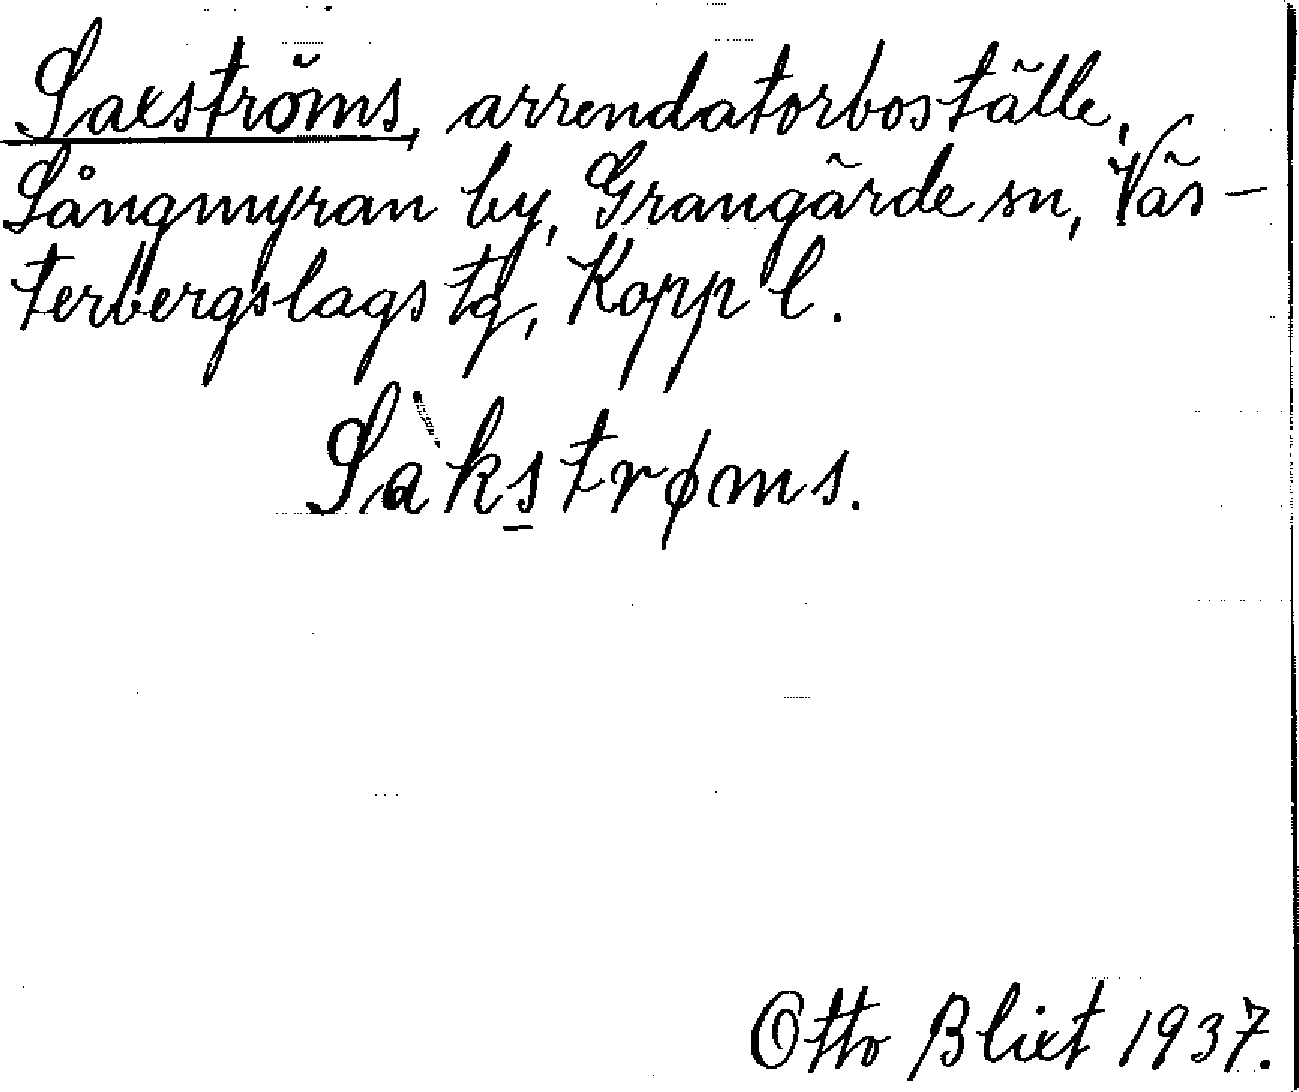 Saxströms, arrendatorboställe,
Sångmyran by, Grangärde sn, Väs-
terbergslags tg, Kopp l.
Sàkstrøms.
Otto Blixt 1937.